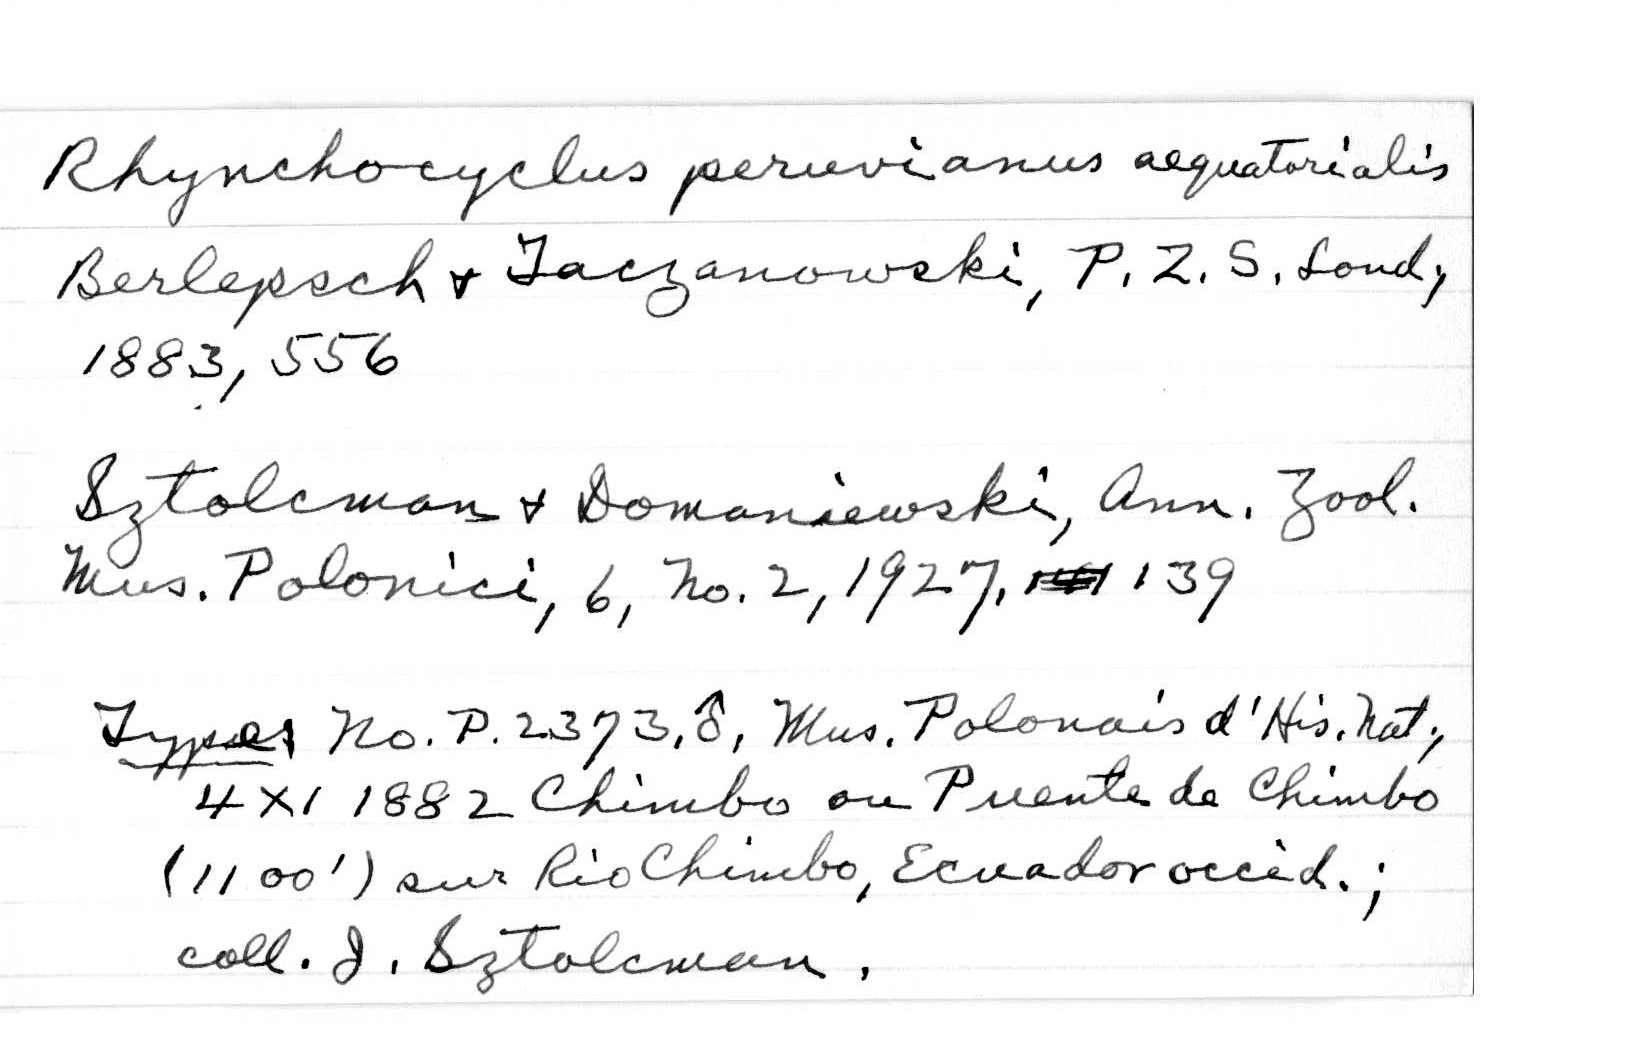 Rhynchocyclus peruvianus aequatorialis
Berlepsch & Taczanowski, P. Z. S. Lond,
1883, 556
Sztolcman & Domaniewski, Ann. Zool.
Mus. Polonici, 6, No. 2, 1927, 139
Types No. P. 2373, ♂, Mus. Polonais d'His. Nat,
4 XI 1882 Chimbo ou Puente de Chimbo
(1100') sur Rio Chimbo, Ecuador occid.;
coll. J. Sztolcman.